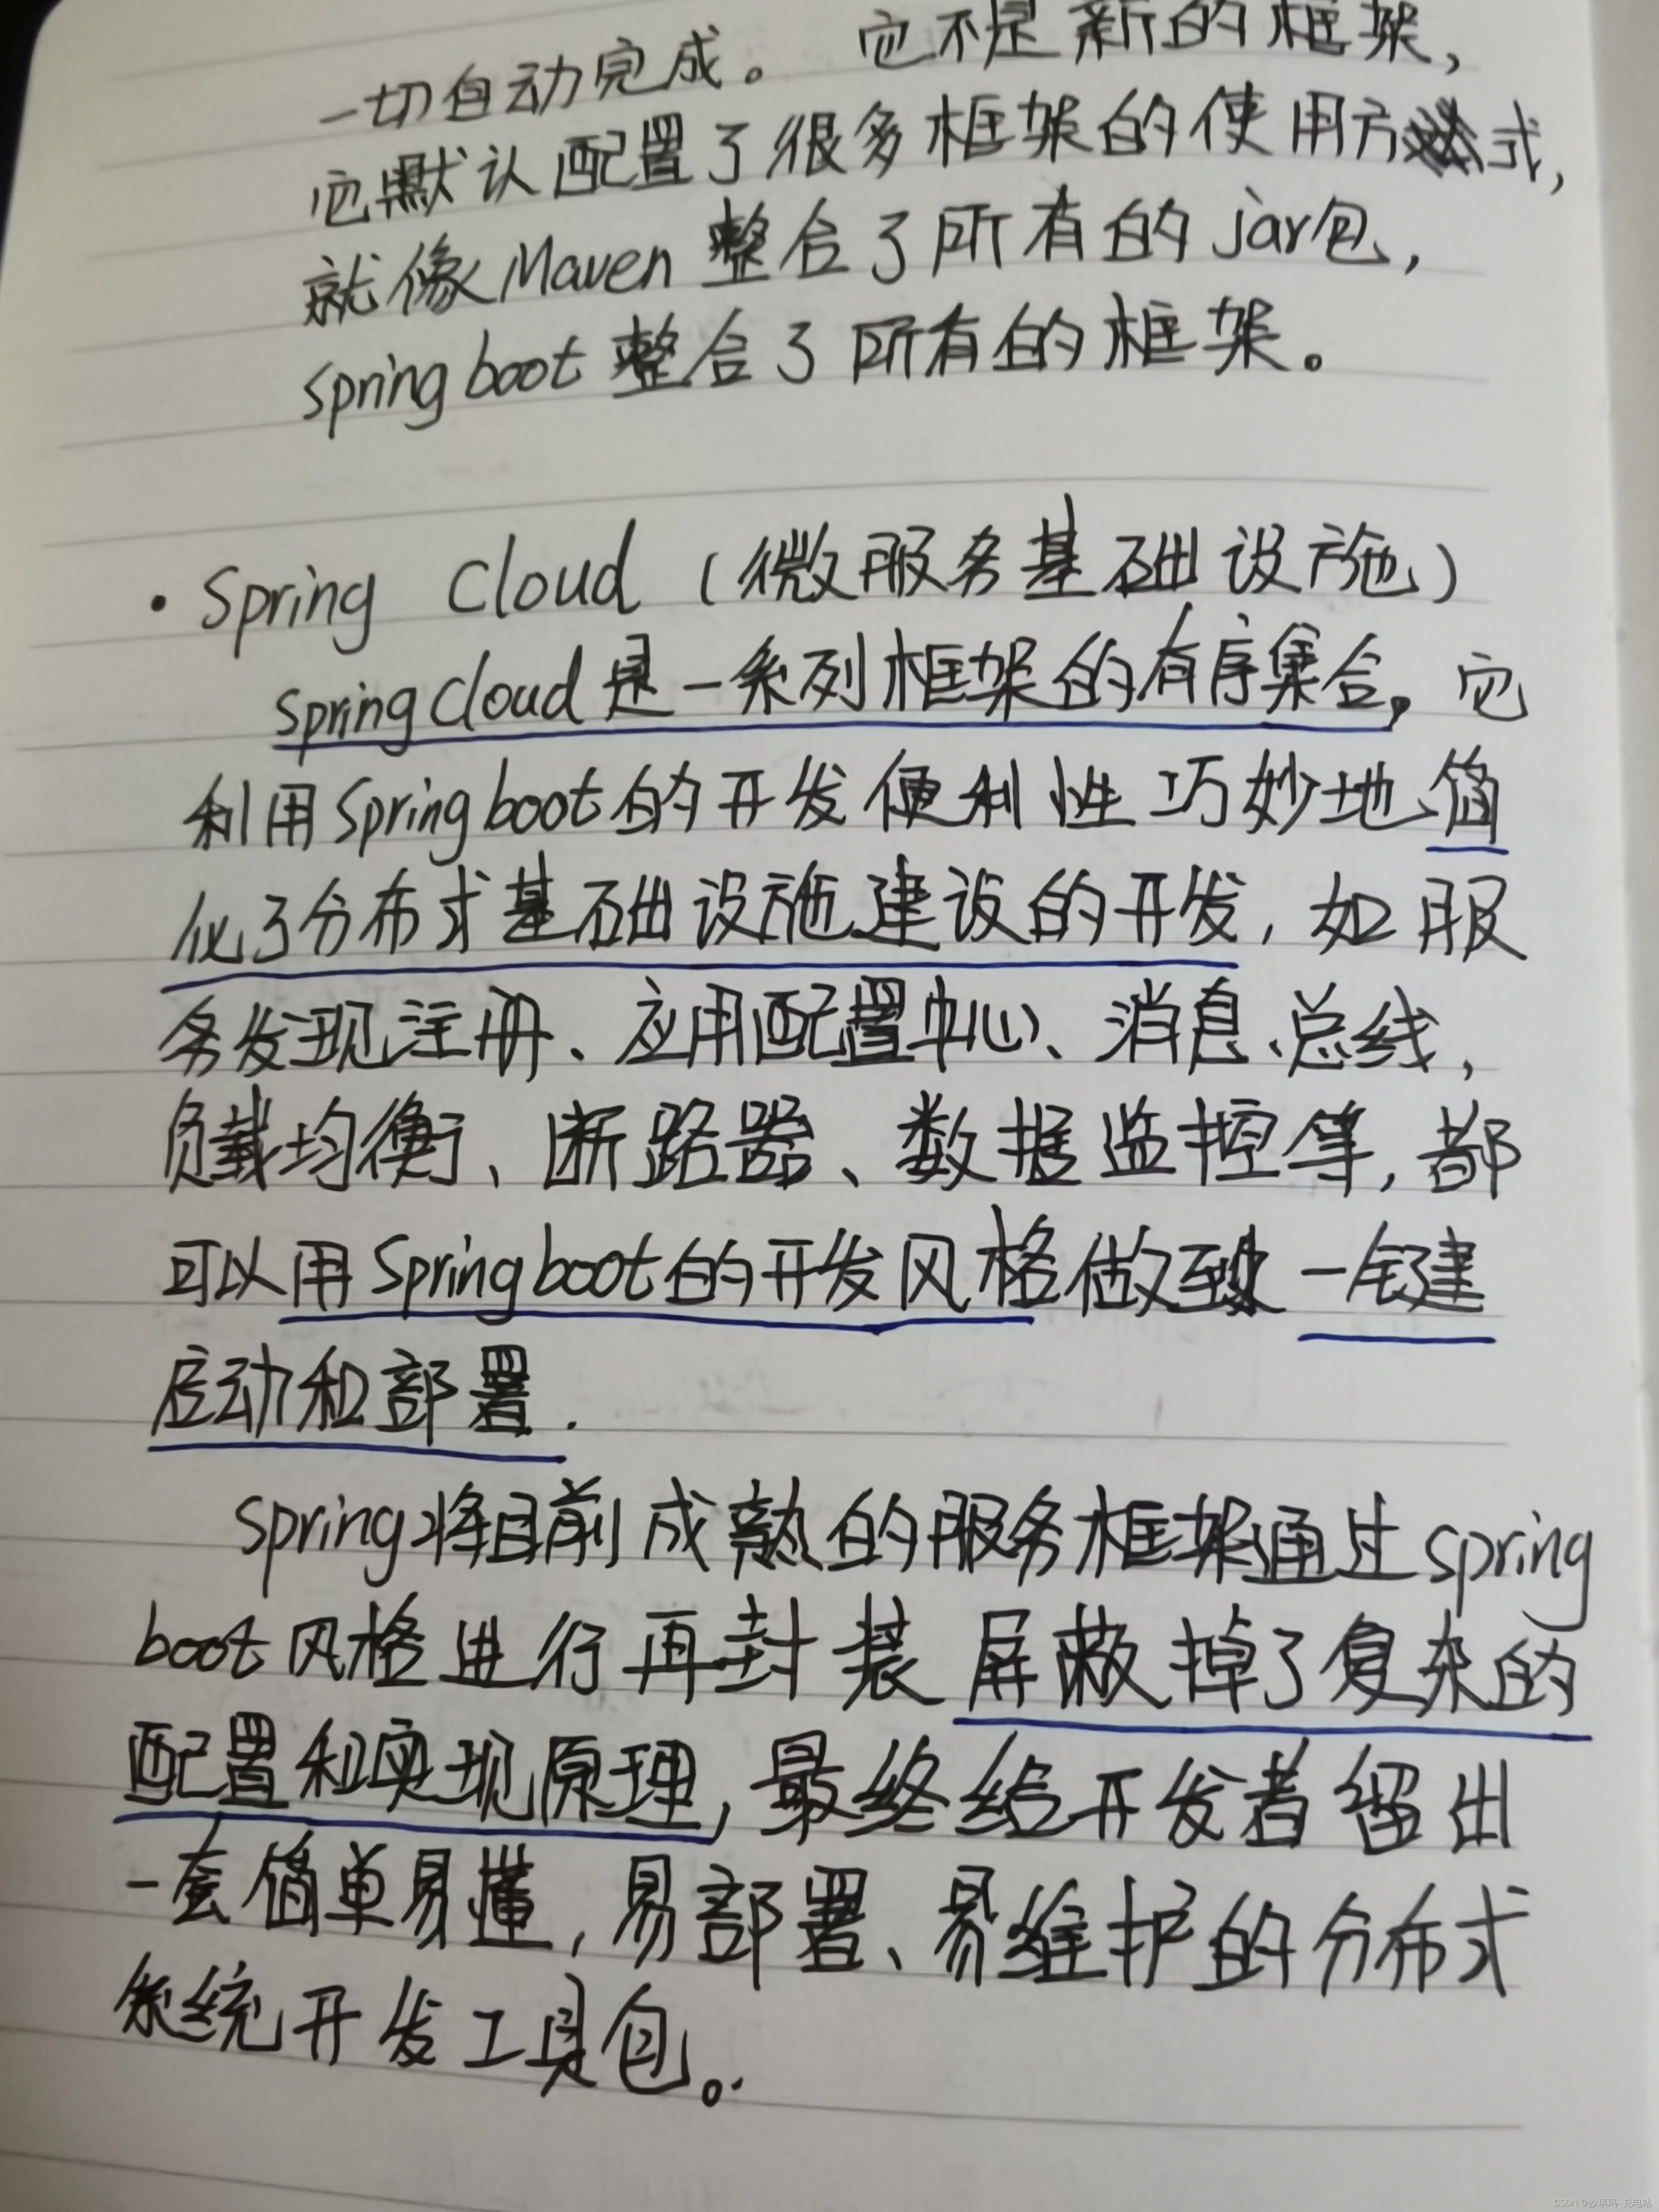 一切自动完成。它不是新的框架，
它默认配置了很多框架的使用方式，
就像Maven整合了所有的jar包，
spring boot整合了所有的框架。
· Spring Cloud（微服务基础设施）
spring cloud是一系列框架的有序集合。它
利用spring boot的开发便利性巧妙地简
化了分布式基础设施建设的开发，如服
务发现注册、应用配置中心、消息总线，
负载均衡、断路器、数据监控等，都
可以用Spring boot的开发风格做到一键
启动和部署.
Spring将目前成熟的服务框架通过spring
boot风格进行再封装屏蔽掉了复杂的
配置和实现原理，最终给开发者留出
一套简单易懂，易部署、易维护的分布式
系统开发工具包。
CSDN @沙琪玛-充电站